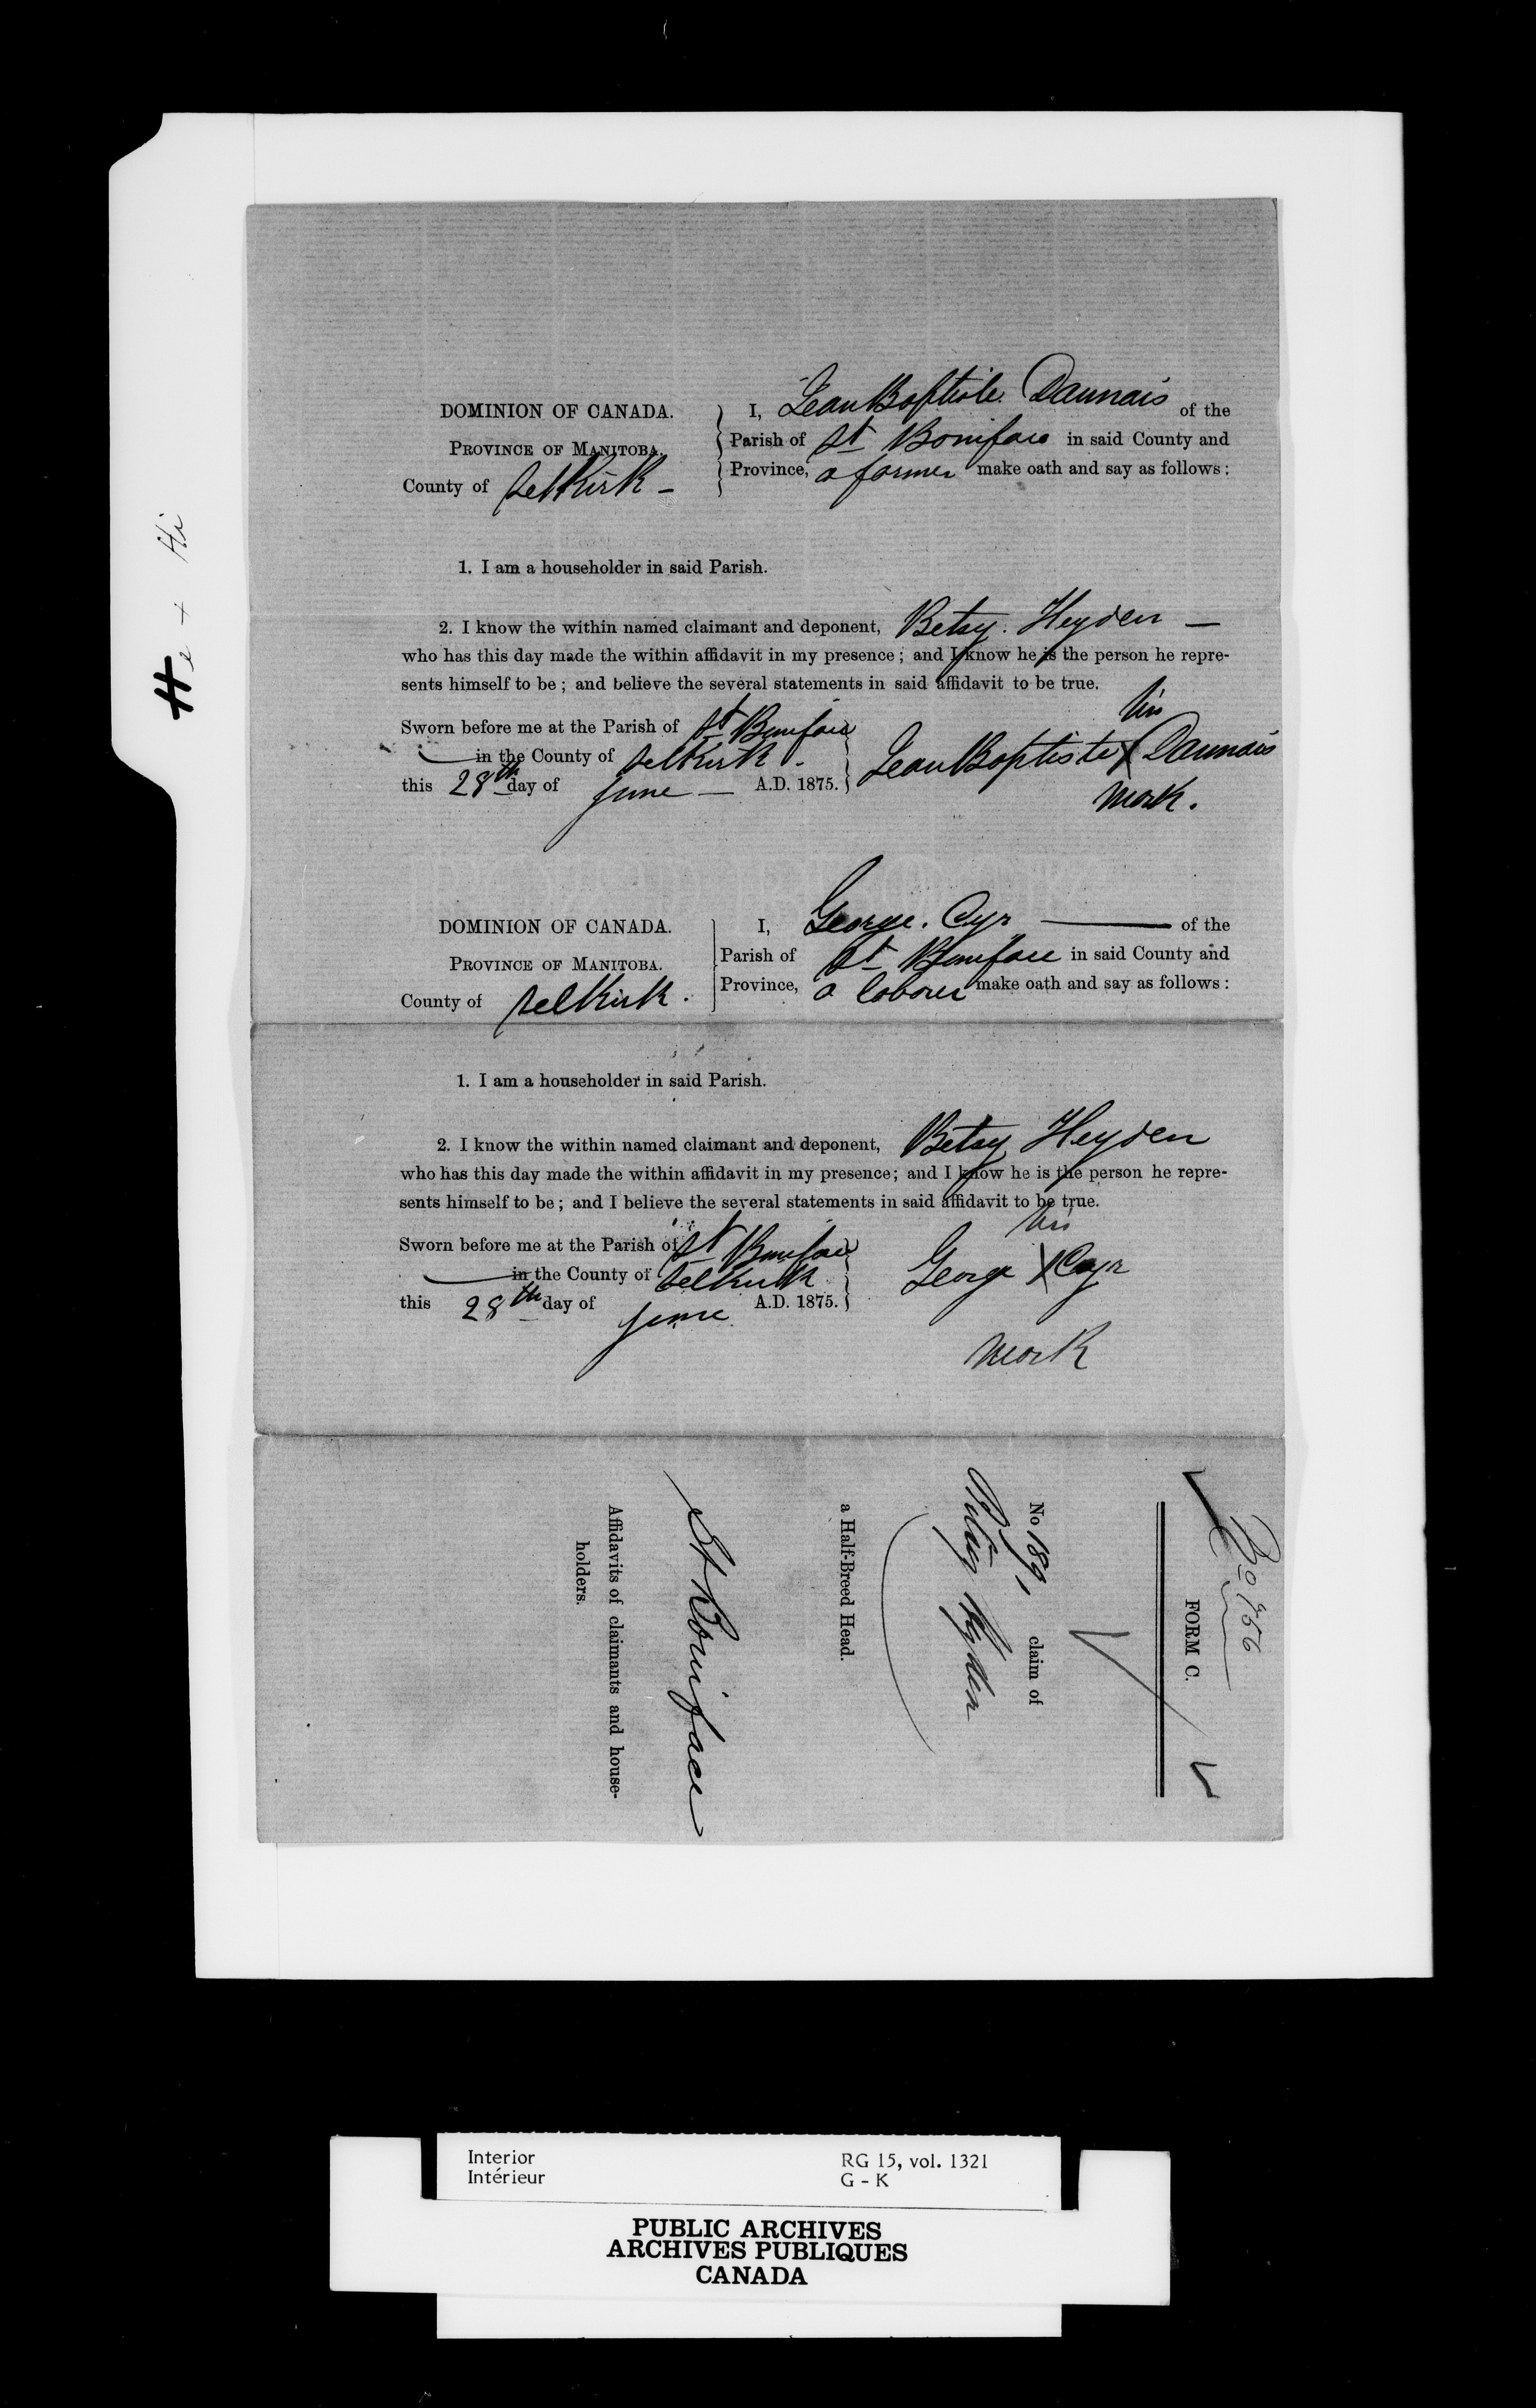 He + Hi
DOMINION OF CANADA.
PROVINCE OF MANITOBA.
County of Selkirk -
I, Jean Baptiste Daunais of the
Parish of St Boniface in said County and
Province, a farmer make oath and say as follows:
1. I am a householder in said Parish.
2. I know the within named claimant and deponent, Betsy Heyden —
who has this day made the within affidavit in my presence; and I know he is the person he repre-
sents himself to be; and believe the several statements in said affidavit to be true.
Sworn before me at the Parish of St Boniface
in the County of Selkirk -
this 28th day of June — A.D. 1875.
his
Jean Baptiste X Daunais
mark.
DOMINION OF CANADA.
PROVINCE OF MANITOBA.
County of Selkirk.
I, George. Cyr — of the
Parish of St Boniface in said County and
Province, a laborer make oath and say as follows:
1. I am a householder in said Parish.
2. I know the within named claimant and deponent, Betsy Heyden
who has this day made the within affidavit in my presence; and I know he is the person he repre-
sents himself to be; and I believe the several statements in said affidavit to be true.
Sworn before me at the Parish of St Boniface
in the County of Selkirk
this 28th day of June A.D. 1875.
his
George X Cyr
mark
FORM C.
No 189, claim of
Betsy Heyden
a Half-Breed Head.
St Boniface
Affidavits of claimants and house-
holders.
Interior
Intérieur
RG 15, vol. 1321
G - K
PUBLIC ARCHIVES
ARCHIVES PUBLIQUES
CANADA